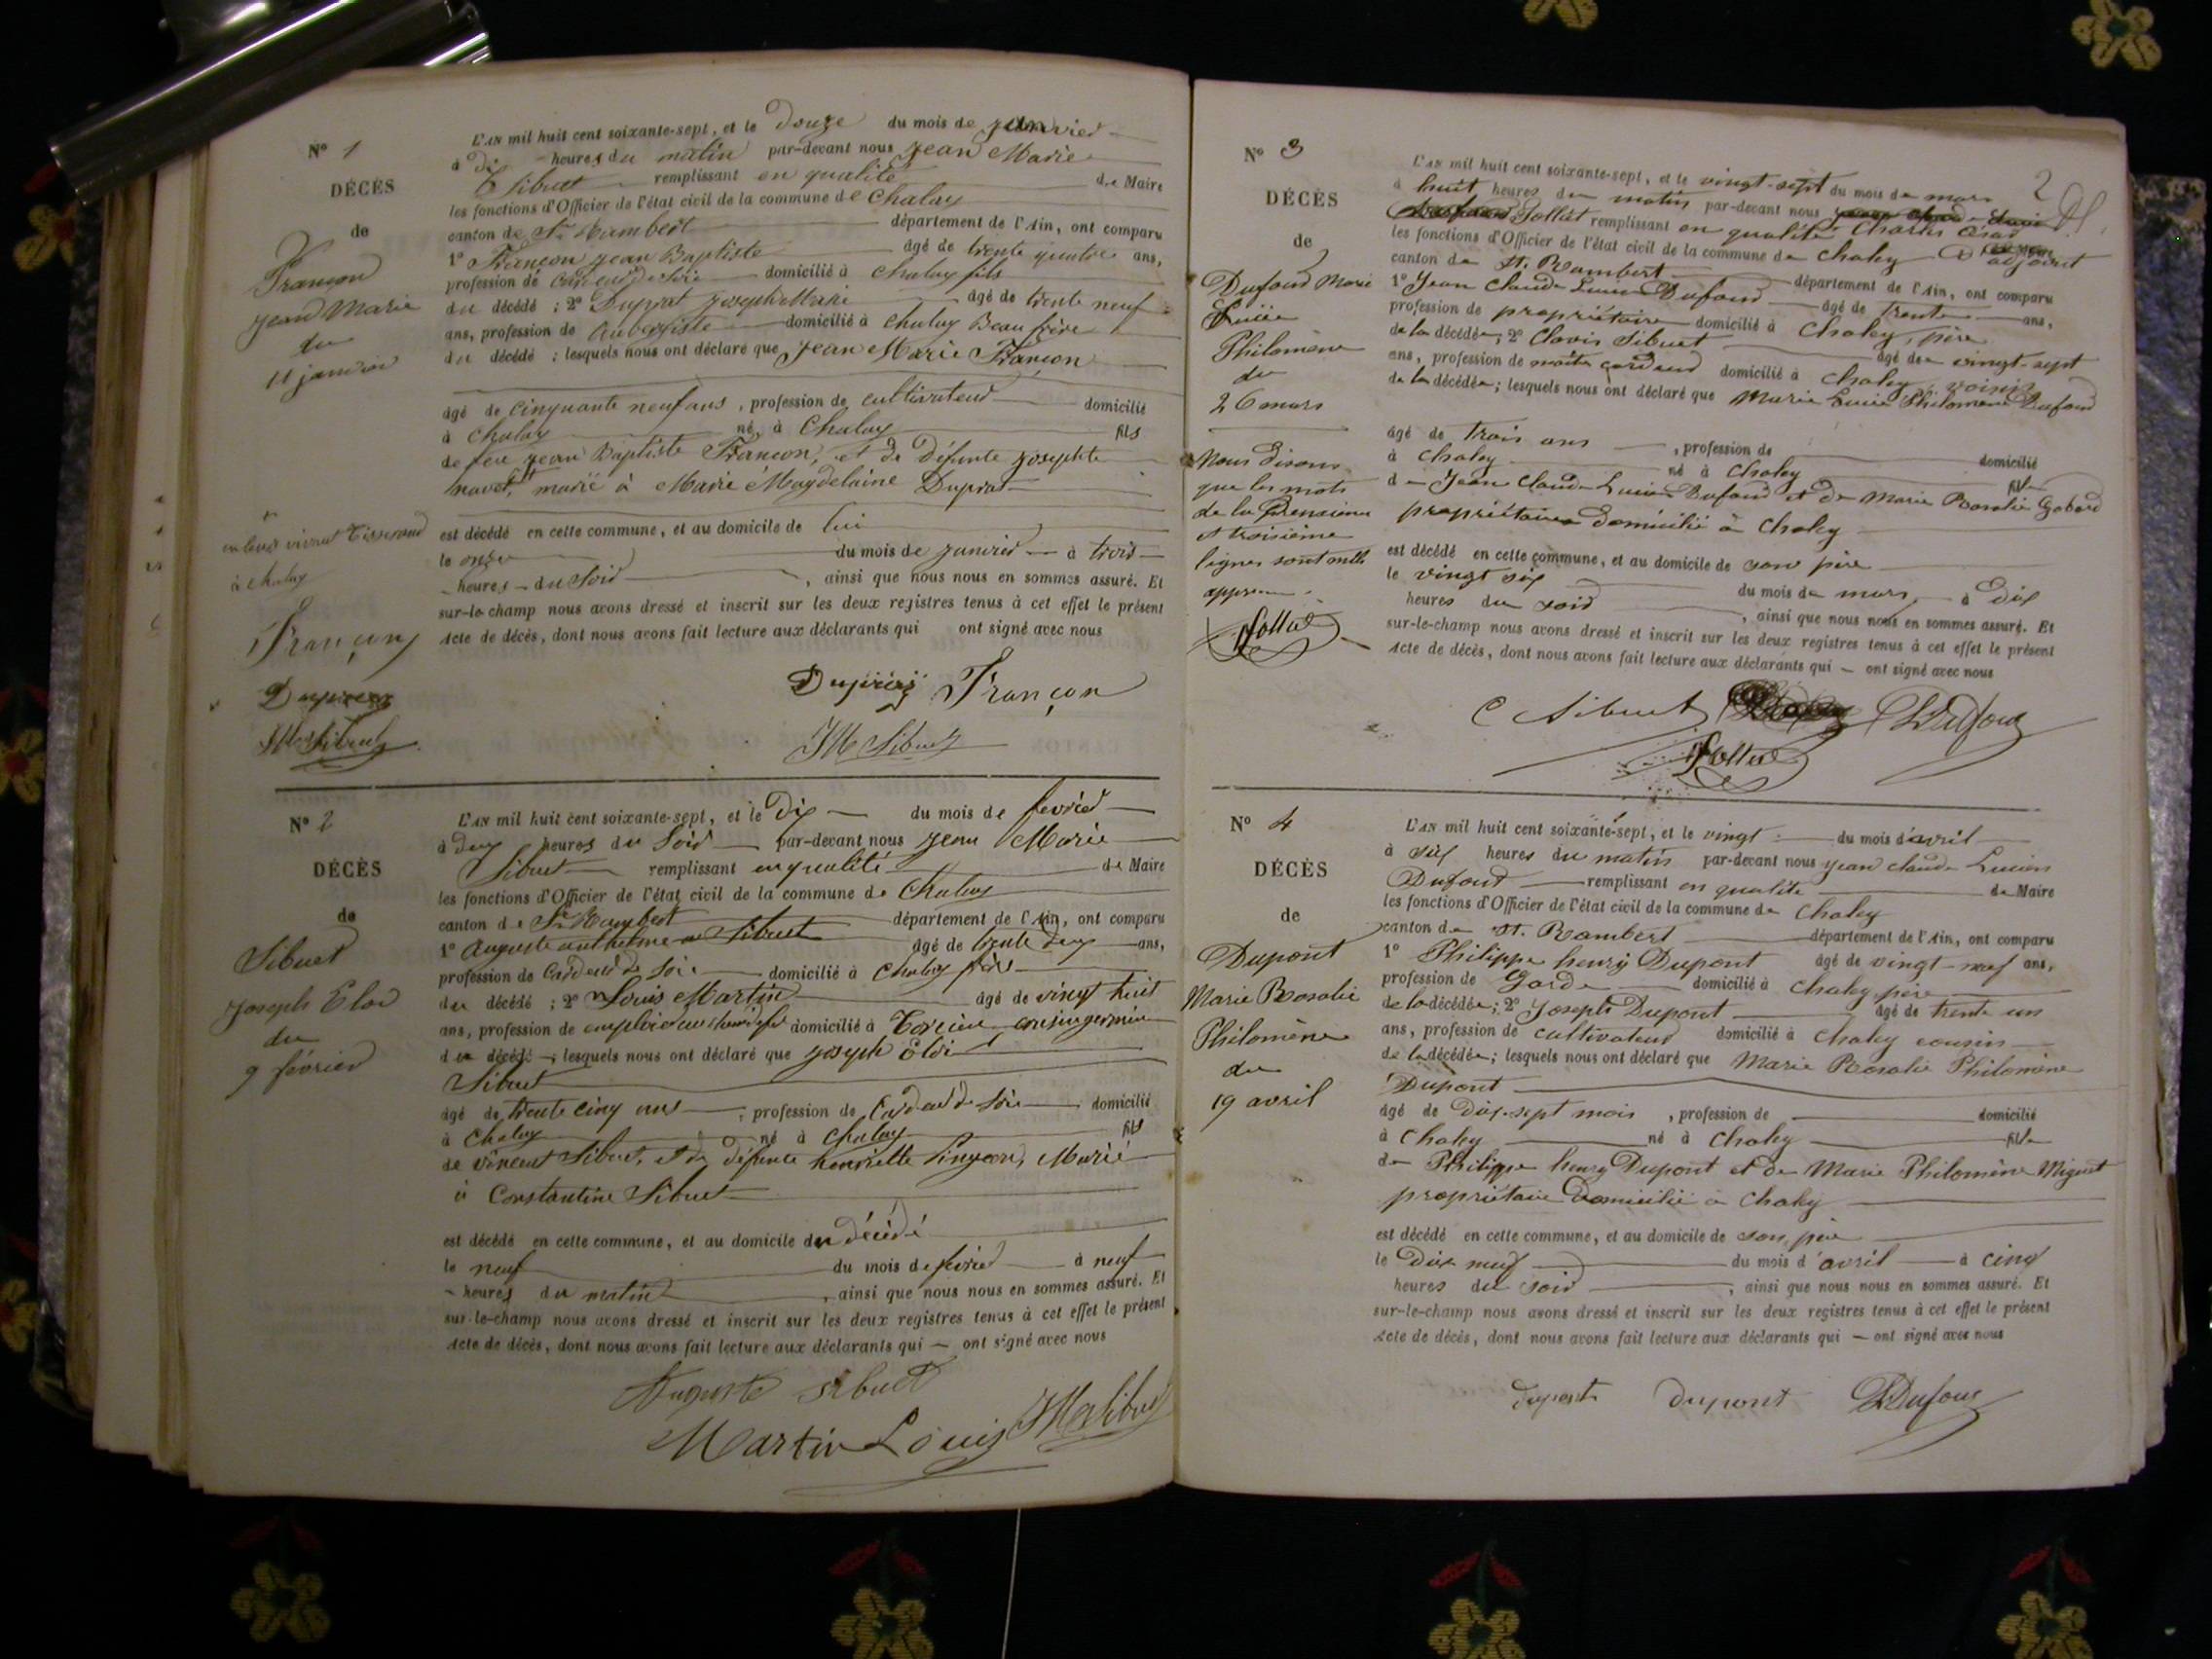 N° 1
DÉCÈS
de
Françon
Jean Marie
du
11 janvier
en leur vivant Tisserand
à chaley
Françon
JM Sibuet
L'AN mil huit cent soixante-sept, et le Douze du mois de janvier
à Dix heures du matin par-devant nous Jean Marie
Sibuet remplissant en qualité de Maire
les fonctions d'Officier de l'état civil de la commune de Chaley
canton de St Rambert département de l'Ain, ont comparu
1° Françon Jean Baptiste âgé de trente quatre ans,
profession de cardeur de soie domicilié à Chaley fils
du décédé ; 2° Duprat Joseph Marie âgé de trente neuf
ans, profession de aubergiste domicilié à Chaley Beau frère
du décédé ; lesquels nous ont déclaré que Jean Marie Françon
âgé de cinquante neuf ans, profession de cultivateur domicilié
à Chaley né à Chaley fils
de feu Jean Baptiste Françon, et de Défunte Josephte
navet, marié à Marie Magdelaine Duprat
est décédé en cette commune, et au domicile de lui
le onze du mois de janvier à trois
heures du Soir, ainsi que nous nous en sommes assuré. Et
sur-le-champ nous avons dressé et inscrit sur les deux registres tenus à cet effet le présent
Acte de décès, dont nous avons fait lecture aux déclarants qui ont signé avec nous
Françon
JM Sibuet
N° 2
DÉCÈS
de
Sibuet
Joseph Eloi
du
9 février
L'AN mil huit cent soixante-sept, et le Dix du mois de fevrier
à deux heures du Soir par-devant nous Jean Marie
Sibuet remplissant en qualité de Maire
les fonctions d'Officier de l'état civil de la commune de Chaley
canton de St Rambert département de l'Ain, ont comparu
1° Auguste anthelme Sibuet âgé de trente deux ans,
profession de Cardeur de Soie domicilié à Chaley frère
du décédé ; 2° Louis Martin âgé de vingt huit
ans, profession de employé au chemin de fer domicilié à Torcieu cousin germain
du décédé ; lesquels nous ont déclaré que Joseph Eloi
Sibuet
âgé de trente cinq ans, profession de Cardeur de Soie domicilié
à Chaley né à Chaley fils
de vincent Sibuet, et de défunte henriette Pingeon, Marié
à Constantine Sibuet
est décédé en cette commune, et au domicile du décédé
le neuf du mois de fevrier à neuf
heures du matin, ainsi que nous nous en sommes assuré. Et
sur-le-champ nous avons dressé et inscrit sur les deux registres tenus à cet effet le présent
Acte de décès, dont nous avons fait lecture aux déclarants qui — ont signé avec nous
Auguste sibuet
Martin Louis JM Sibuet
2
N° 3
DÉCÈS
de
Dufour Marie
Lucie
Philomène
du
26 mars
Nous disons
que les mots
de la Deuxième
et troisième
lignes sont nuls
Follet
L'AN mil huit cent soixante-sept, et le vingt-sept du mois de mars
à huit heures du matin par-devant nous
Follet remplissant en qualité Charles César
les fonctions d'Officier de l'état civil de la commune de Chaley D'adjoint
canton de St. Rambert département de l'Ain, ont comparu
1° Jean Claude Lucien Dufour âgé de Trente ans,
profession de propriétaire domicilié à Chaley, père
de la décédée ; 2° Clovis Sibuet âgé de vingt-sept
ans, profession de maître cardeur domicilié à Chaley, voisin
de la décédée ; lesquels nous ont déclaré que Marie Lucie Philomène Dufour
âgé de trois ans, profession de domicilié
à Chaley né à Chaley fille
de Jean Claude Lucien Dufour et de Marie Rosalie Gobard
propriétaires Domicilié à Chaley
est décédé en cette commune, et au domicile de son père
le vingt six du mois de mars, à Dix
heures du soir, ainsi que nous nous en sommes assuré. Et
sur-le-champ nous avons dressé et inscrit sur les deux registres tenus à cet effet le présent
Acte de décès, dont nous avons fait lecture aux déclarants qui — ont signé avec nous
C Sibuet LDufour
Follet
N° 4
DÉCÈS
de
Dupont
Marie Rosalie
Philomène
du
19 avril
L'AN mil huit cent soixante-sept, et le vingt du mois d'avril
à six heures du matin par-devant nous Jean Claude Lucien
Dufour remplissant en qualité de Maire
les fonctions d'Officier de l'état civil de la commune de Chaley
canton de St. Rambert département de l'Ain, ont comparu
1° Philippe henry Dupont âgé de vingt-neuf ans,
profession de Garde domicilié à Chaley, père
de la décédée ; 2° Joseph Dupont âgé de trente un
ans, profession de cultivateur domicilié à Chaley cousin
de la décédée ; lesquels nous ont déclaré que Marie Rosalie Philomène
Dupont
âgé de Dix-sept mois, profession de domicilié
à Chaley né à Chaley fille
de Philippe henry Dupont et de Marie Philomène Miguet
propriétaire Domicilié à Chaley
est décédé en cette commune, et au domicile de son père
le Dix neuf du mois d'avril à cinq
heures du soir, ainsi que nous nous en sommes assuré. Et
sur-le-champ nous avons dressé et inscrit sur les deux registres tenus à cet effet le présent
Acte de décès, dont nous avons fait lecture aux déclarants qui — ont signé avec nous
dupont dupont LDufour